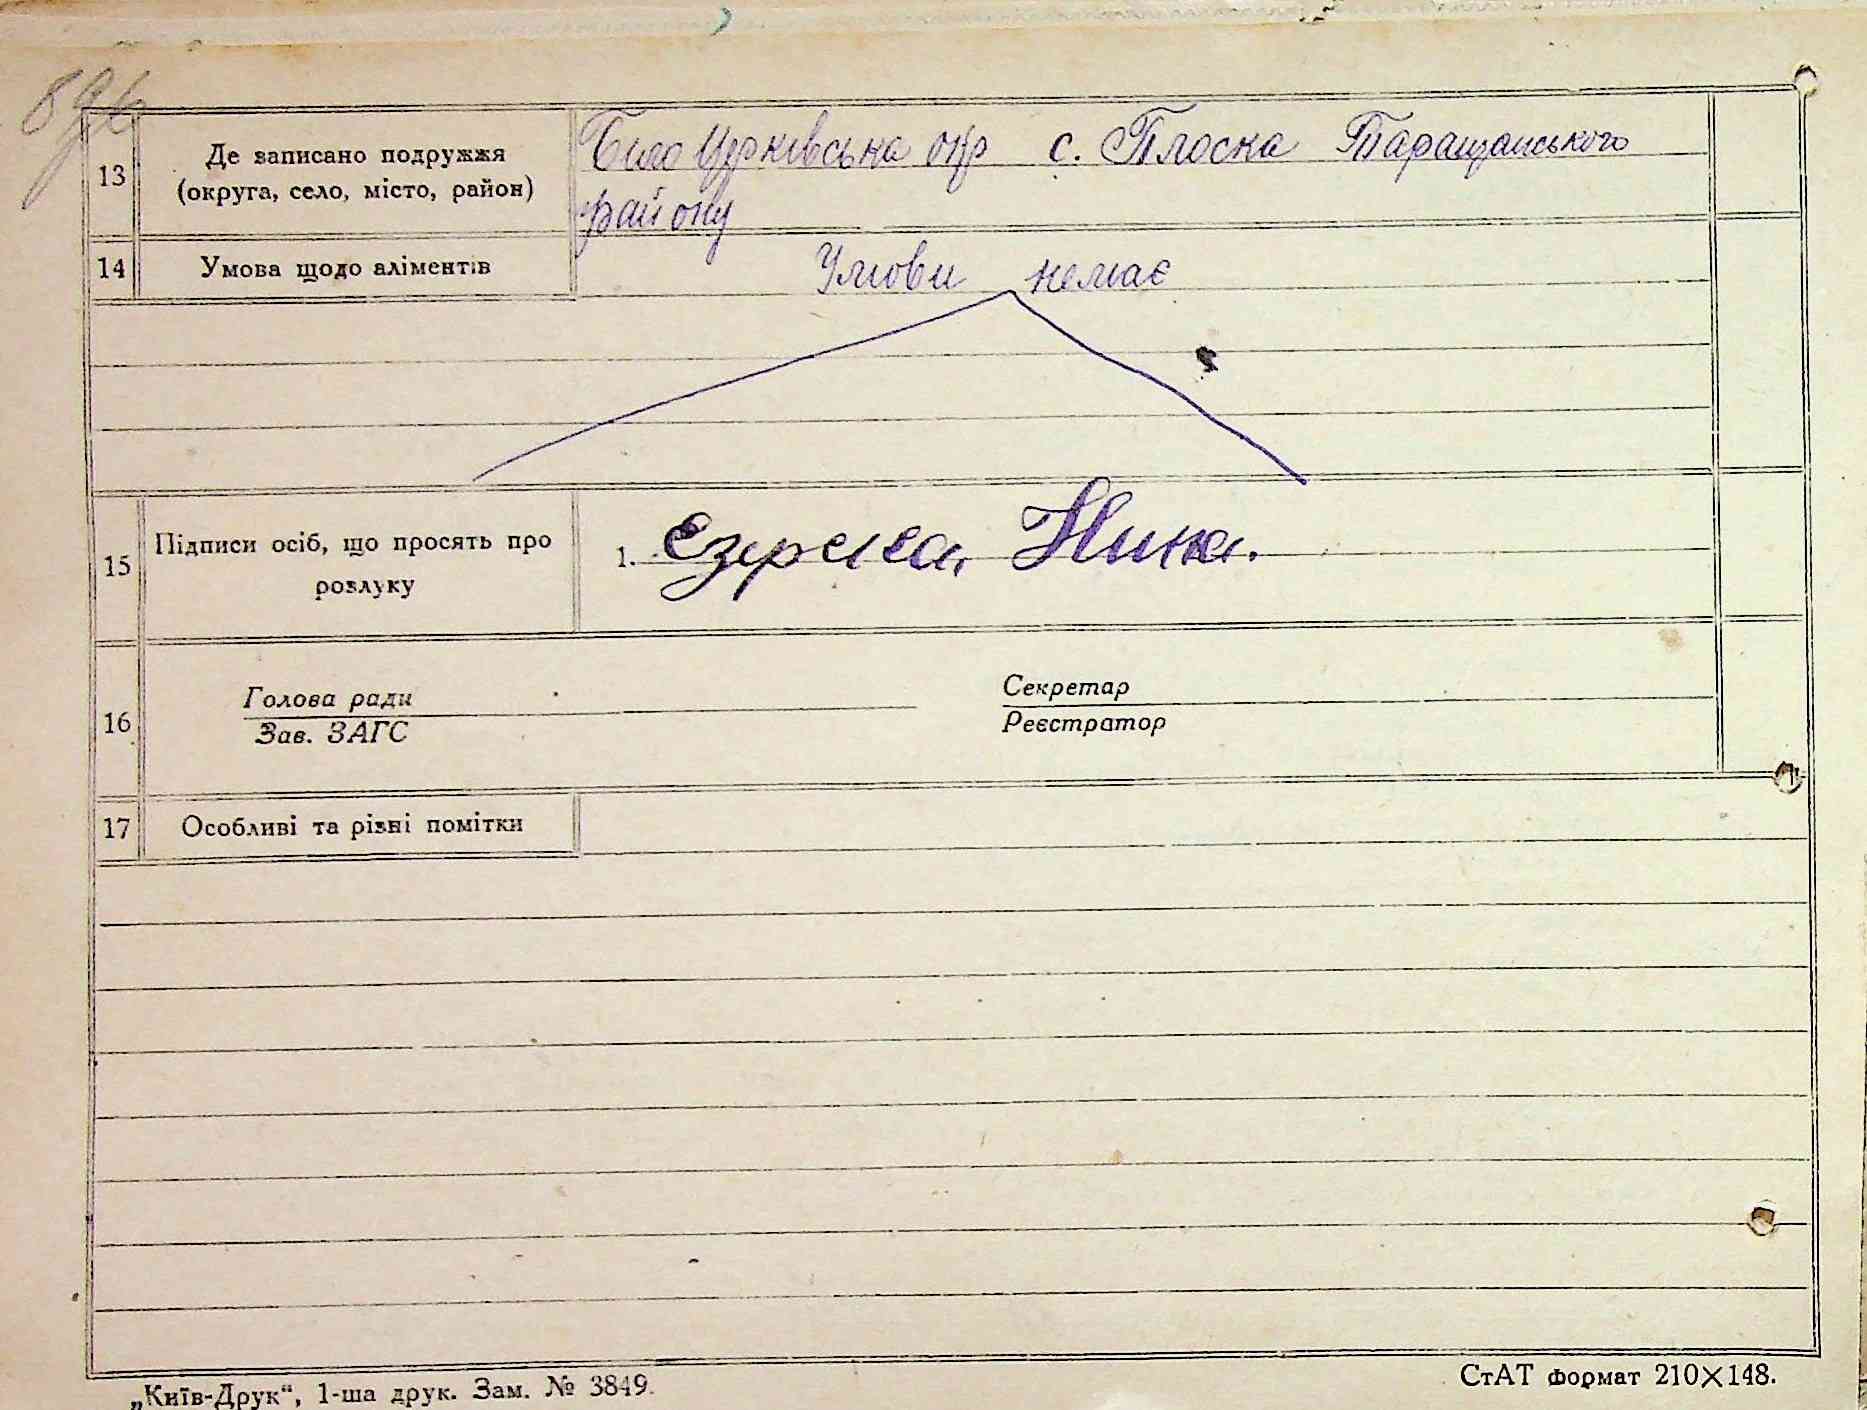 13 Де записано подружжя (округа, село, місто, район) Біло Церківська окр с. Плоска Таращанського
району
14 Умова щодо аліментів Умови немає
15 Підписи осіб, що просять про розлуку 1. Нина.
16 Голова ради Секретар
Зав. ЗАГС Реєстратор
17 Особливі та різні помітки
„Київ-Друк“, 1-ша друк. Зам. № 3849. СтАТ формат 210×148.